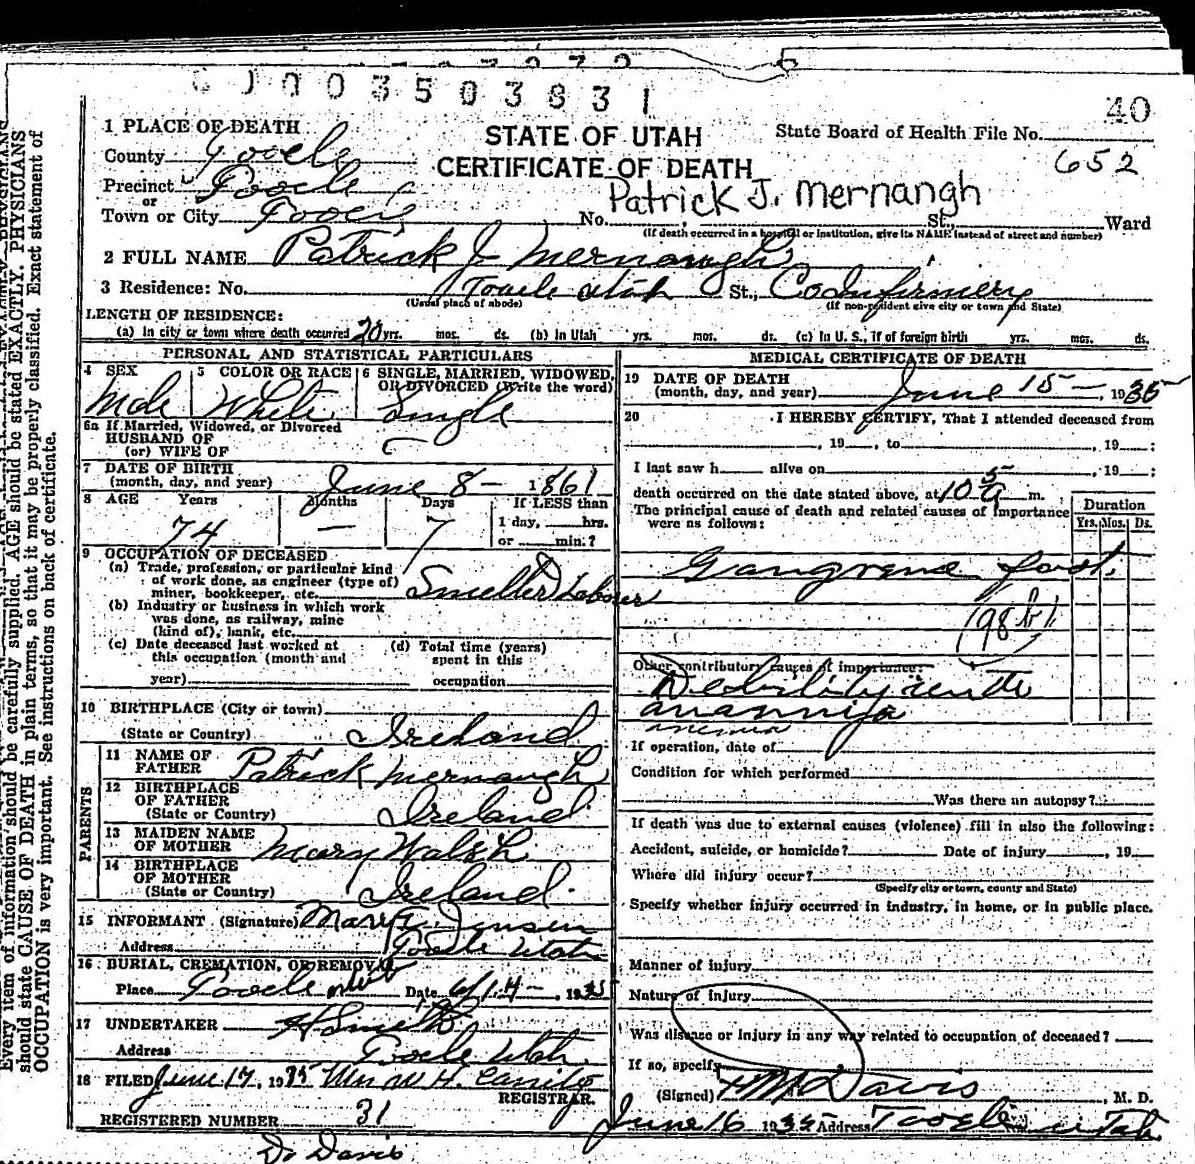 5
6J0035038 31
40
1 PLACE OF DEATH
STATE OF UTAH
State Board of Health File No.
County Tooele
CERTIFICATE OF DEATH
652
Precinct Tooele
Patrick J. Mernangh
or
Town or City Tooele No. St., Ward
(If death occurred in a hospital or institution, give its NAME instead of street and number)
2 FULL NAME Patrick J Mernaugh
3 Residence: No. Tooele Utah St., Co Infirmiery
(Usual place of abode) (If non-resident give city or town and State)
LENGTH OF RESIDENCE:
(a) In city or town where death occurred 20 yrs. mos. ds. (b) In Utah yrs. mos. ds. (c) In U. S., if of foreign birth yrs. mos. ds.
PERSONAL AND STATISTICAL PARTICULARS
4 SEX 5 COLOR OR RACE 6 SINGLE, MARRIED, WIDOWED, OR DIVORCED (Write the word)
Male White Single
6a If Married, Widowed, or Divorced
HUSBAND OF
(or) WIFE OF
7 DATE OF BIRTH
(month, day, and year) June 8 - 1861
8 AGE Years Months Days If LESS than
74 — 7 1 day, hrs.
or min.?
9 OCCUPATION OF DECEASED
(a) Trade, profession, or particular kind
of work done, as engineer (type of)
miner, bookkeeper, etc. Smelter Laborer
(b) Industry or business in which work
was done, as railway, mine
(kind of), bank, etc.
(c) Date deceased last worked at (d) Total time (years)
this occupation (month and spent in this
year) occupation
10 BIRTHPLACE (City or town)
(State or Country) Ireland
PARENTS
11 NAME OF
FATHER Patrick Mernaugh
12 BIRTHPLACE
OF FATHER
(State or Country) Ireland
13 MAIDEN NAME
OF MOTHER Mary Walsh
14 BIRTHPLACE
OF MOTHER
(State or Country) Ireland
15 INFORMANT (Signature) Mary Jensen
Address Tooele Utah
16 BURIAL, CREMATION, OR REMOVAL
Place Tooele Date 6/17 - 1935
17 UNDERTAKER H Smith
Address Tooele Utah
18 FILED June 17, 1935 Mrs W. H.
REGISTRAR.
31
REGISTERED NUMBER
Dr Davis
MEDICAL CERTIFICATE OF DEATH
19 DATE OF DEATH
(month, day, and year) June 15 —, 1935
20 I HEREBY CERTIFY, That I attended deceased from
, 19 , to , 19 :
I last saw h alive on , 19 :
death occurred on the date stated above, at 10 5 a m.
The principal cause of death and related causes of importance
were as follows:
Duration
Yrs. Mos. Ds.
Gangrene foot.
(98 b)
Other contributory causes of importance:
Debility senile
anannija
anemia
If operation, date of
Condition for which performed
Was there an autopsy?
If death was due to external causes (violence) fill in also the following:
Accident, suicide, or homicide? Date of injury , 19
Where did injury occur?
(Specify city or town, county and State)
Specify whether injury occurred in industry, in home, or in public place.
Manner of injury
Nature of injury
Was disease or injury in any way related to occupation of deceased?
If so, specify
(Signed) H M Davis, M. D.
June 16 1935 Address Tooele Utah
Every item of information should be carefully supplied. AGE should be stated EXACTLY. PHYSICIANS
should state CAUSE OF DEATH in plain terms, so that it may be properly classified. Exact statement of
OCCUPATION is very important. See instructions on back of certificate.